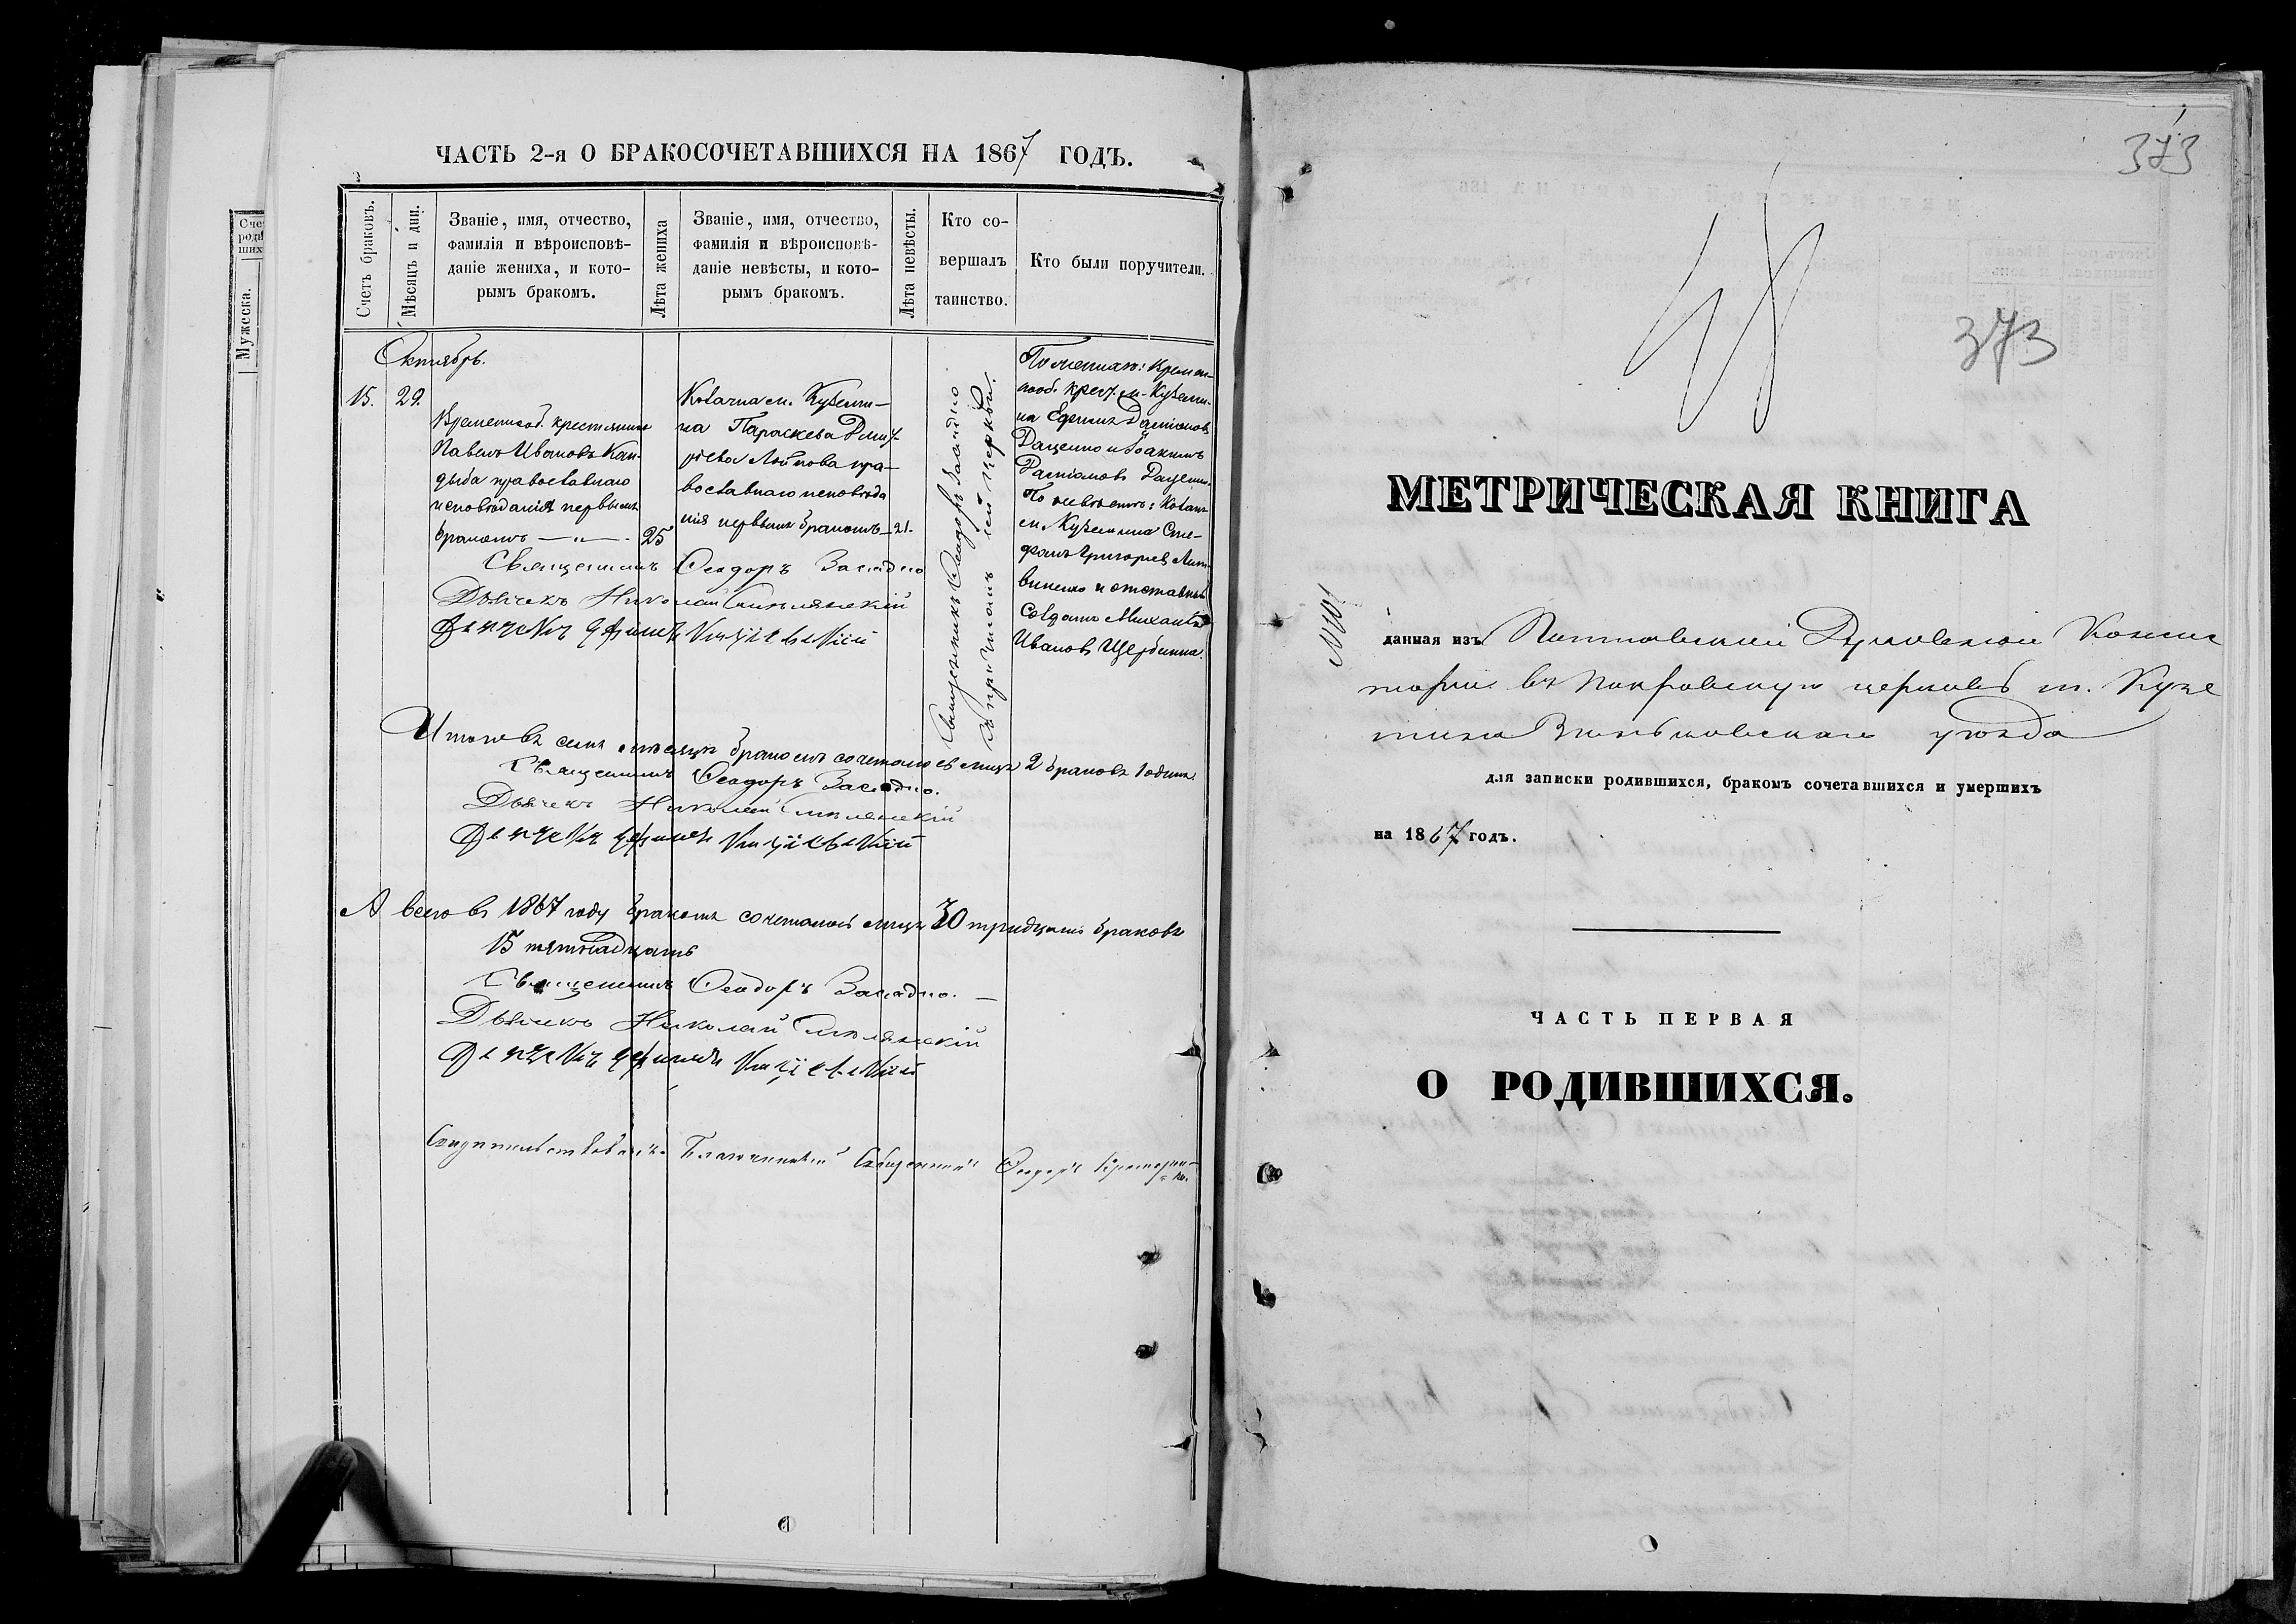 Счет
роди
ших
Мужеска.
ЧАСТЬ 2-я О БРАКОСОЧЕТАВШИХСЯ НА 1867 ГОДЪ.
Счетъ браковъ.
Мѣсяцъ и дни.
Званіе, имя, отчество,
фамилія и вѣроисповѣ-
даніе жениха, и кото-
рымъ бракомъ.
Лѣта жениха
Званіе, имя, отчество,
фамилія и вѣроисповѣ-
даніе невѣсты, и кото-
рымъ бракомъ.
Лѣта невѣсты.
Кто со-
вершалъ
таинство.
Кто были поручители.
Октябрь.
15.
29.
Временнооб. крестьянинъ
Павелъ Ивановъ Кан-
дыба православнаго
исповѣданія первымъ
бракомъ — „ —
25
Козачка м. Куземи-
на Параскева Дмит-
ріева пра-
вославнаго исповѣда
нія первымъ бракомъ
21.
Священникъ Ѳеодоръ
съ причтомъ сей церкви.
По женихѣ: времен-
нооб. крест. м. Куземи-
на Ефимъ Даміановъ
Даценко и Іоакимъ
Даміановъ Даценко.
По невѣстѣ: козакъ
м. Куземина Сте-
фанъ Григорьевъ Лит-
виненко и отставный
солдатъ Михаилъ
Ивановъ Щербина.
Священникъ Ѳеодоръ
Дьячекъ Николай
Итого въ семъ мѣсяцѣ бракомъ сочеталось лицъ 2 браковъ 1 одинъ.
Священникъ Ѳеодоръ
Дьячекъ Николай
А всего въ 1867 году бракомъ сочеталось лицъ 30 тридцать браковъ
15 пятнадцать
Священникъ Ѳеодоръ
Дьячекъ Николай
Благочинный Священникъ Ѳеодоръ
373
48
373
МЕТРИЧЕСКАЯ КНИГА
данная изъ Полтавской Духовной Консис
торіи въ Покровскую церковь м. Кузе
мина Зѣньковскаго уѣзда
для записки родившихся, бракомъ сочетавшихся и умершихъ
на 1867 годъ.
ЧАСТЬ ПЕРВАЯ
О РОДИВШИХСЯ.